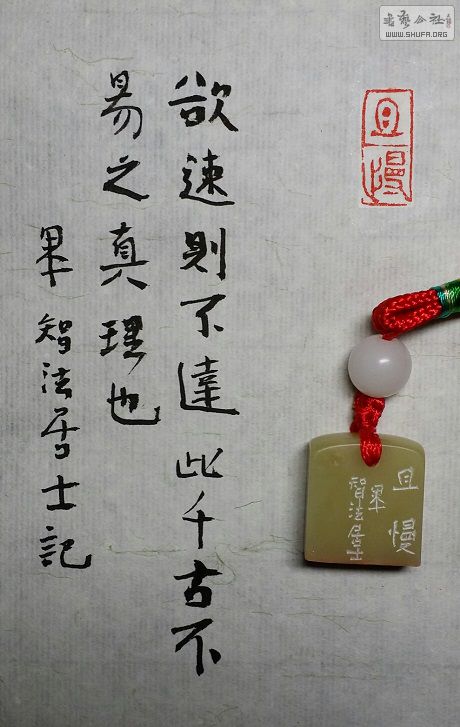 書藝公社
WWW.SHUFA.ORG
欲速則不達此千古不
易之真理也
智法居士記
且慢
且慢
智法居士